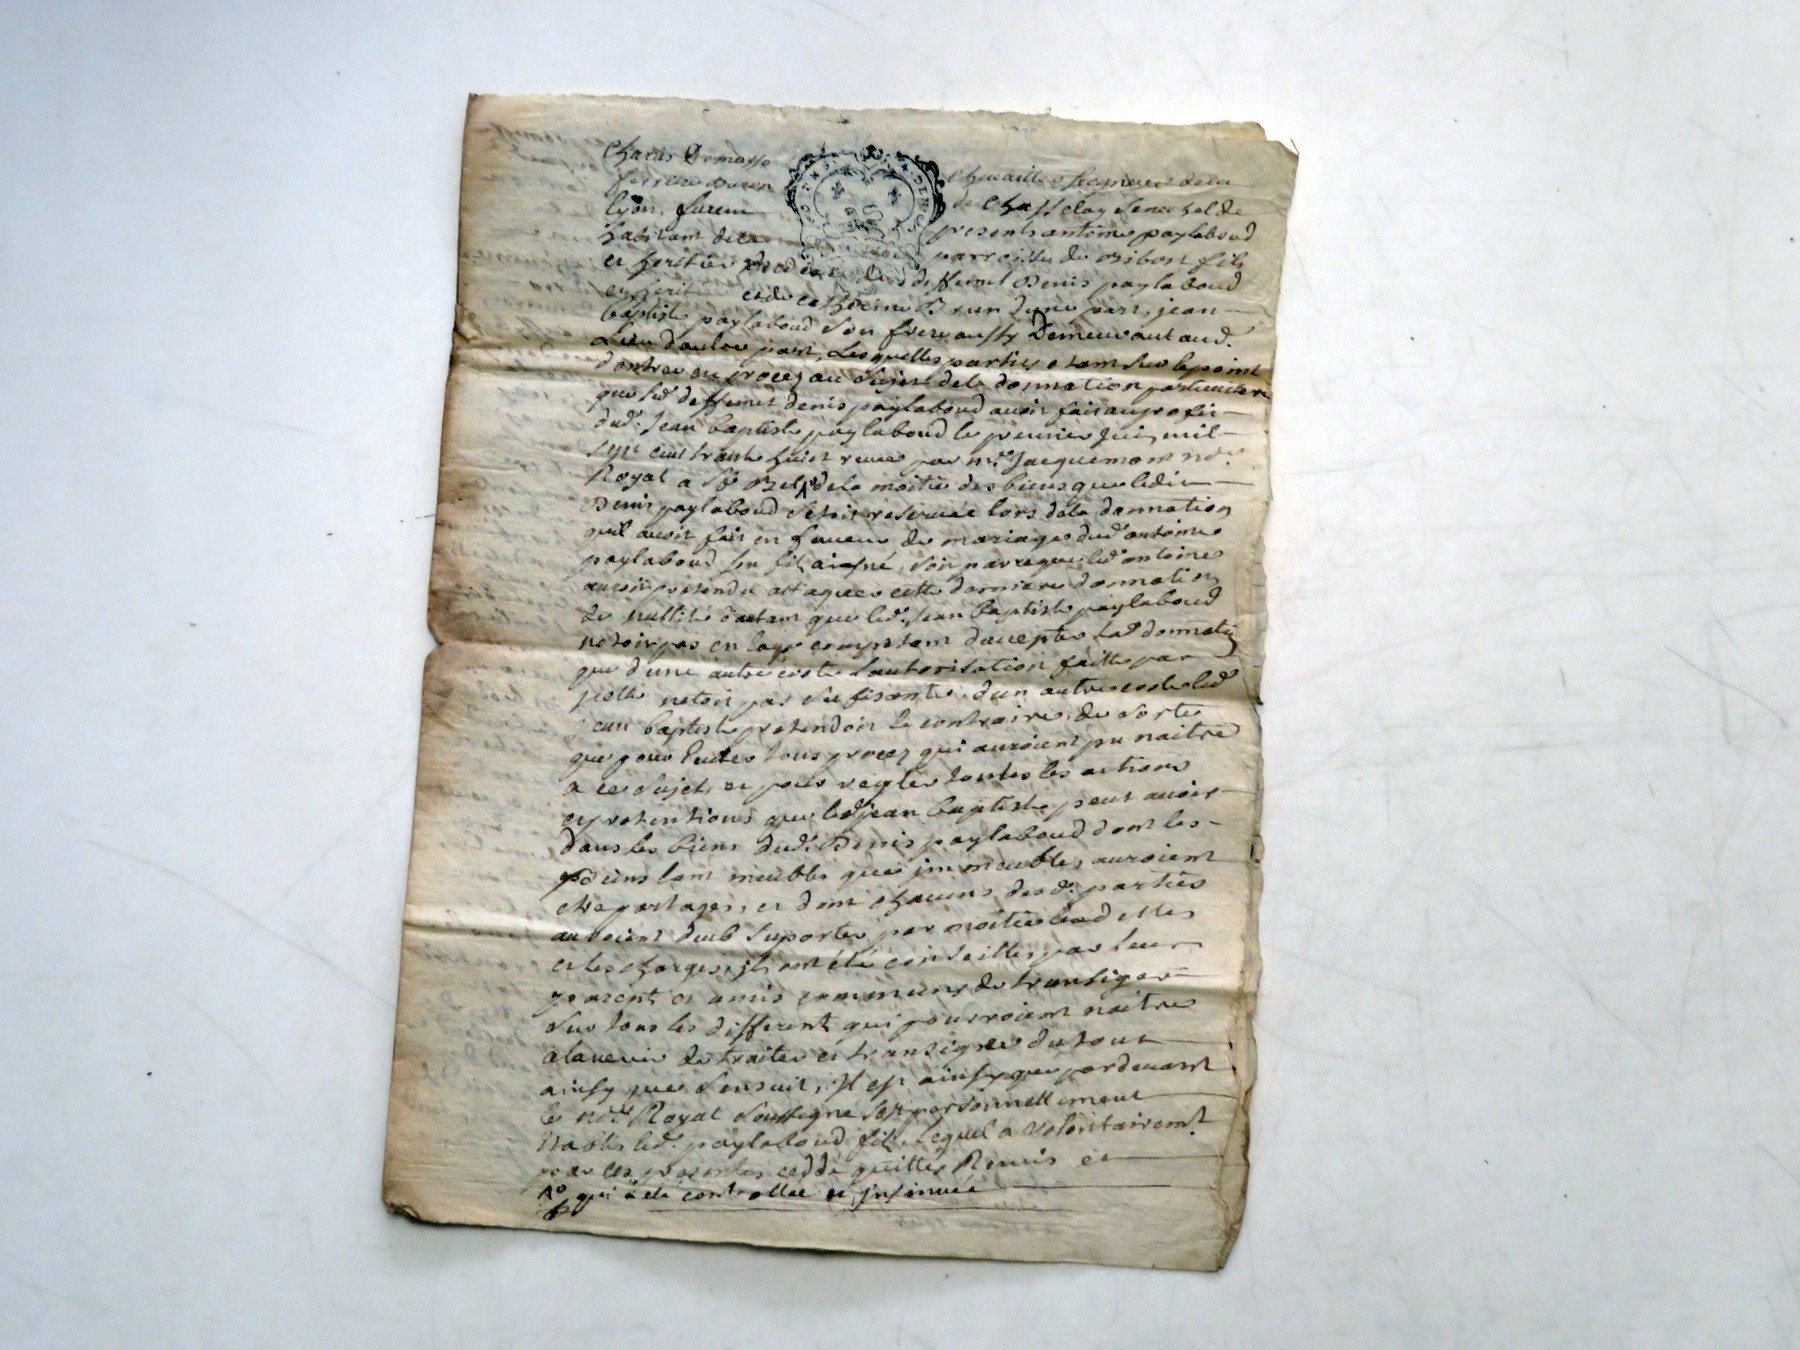 Charles Demasso chevaillier seigneur de la
lyon, furent de Chasselay Senechal de
habitant de presents antoine paylaboud
et heritier parroisse de Bibost fils
deffunt Denis paylaboud
et de d'une part, jean
baptiste paylaboud son frere aussy Demeurant aud.
Lieu d'autre part, Lesquelles parties etant sur le point
d'entrer en procez au sujet de la donnation particuliere
que led. deffunt denis paylaboud avoit fait au profit
dud. Jean baptiste paylaboud le premier juin mil
sept cent trante huict receue par me. Jacquemont no.re
Royal a St. Bel, de la moitié des biens que ledit
Denis paylaboud s'etoit reservée lors de la donnation
qu'il avoit fait en faveur de mariage dud. antoine
paylaboud son fils aisné, soit parceque led. antoine
avoit pretendu attaquer cette derniere donnation
de nullité d'autant que led. Jean baptiste paylaboud
n'etoit pas en competant d'accepter lad. donnation
que d'une autre coste l'autorisation faitte par
icelle n'etoit pas sufisante, d'un autre coste led.
jean baptiste pretendoit le contraire, de sorte
que pour Eviter tous procez qui auroient pu naitre
a ce sujet, et pour regler toutes les actions
et pretentions que led. jean baptiste peut avoir
dans les biens dud. Denis paylaboud dont les
biens tant meubles que immeubles auroient
etre partages, et dont chacuns desd. parties
auroient deub suporter par moitié les dettes
et les charges, ils ont été conseillés par leur
parents et amis communs de transiger
sur tous les differents qui pourroient naitre
a l'avenir de traiter et transiger du tout
ainsy que s'ensuit, Il est ainsy que pardevant
le no.re Royal soussigné s'est personnellement
etably led. paylaboud fils, lequel a volontairemt.
par ces presentes ceddé quitté Remis et
qui a eté controllée et insinuée